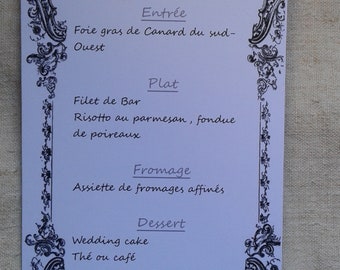 Entrée
Foie gras de Canard du sud-
Ouest
Plat
Filet de Bar
Risotto au parmesan , fondue
de poireaux
Fromage
Assiette de fromages affinés
Dessert
Wedding cake
Thé ou café